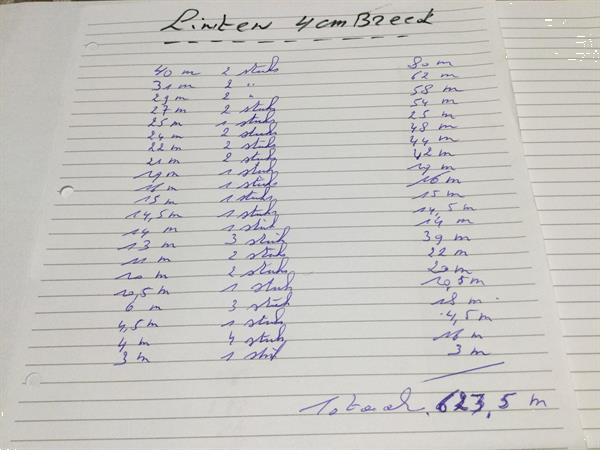 Linten 4cm Breed
40 m 2 stuks 80 m
31 m 2 " 62 m
29 m 2 " 58 m
27 m 2 stuks 54 m
25 m 1 stuk 25 m
24 m 2 stuks 48 m
22 m 2 stuks 44 m
21 m 2 stuks 42 m
19 m 1 stuk 19 m
16 m 1 stuk 16 m
15 m 1 stuk 15 m
14,5 m 1 stuk 14,5 m
14 m 1 stuk 14 m
13 m 3 stuks 39 m
11 m 2 stuks 22 m
10 m 2 stuks 20 m
10,5 m 1 stuk 10,5 m
6 m 3 stuks 18 m
4,5 m 1 stuk 4,5 m
4 m 4 stuks 16 m
3 m 1 stuk 3 m
Totaal. 623,5 m